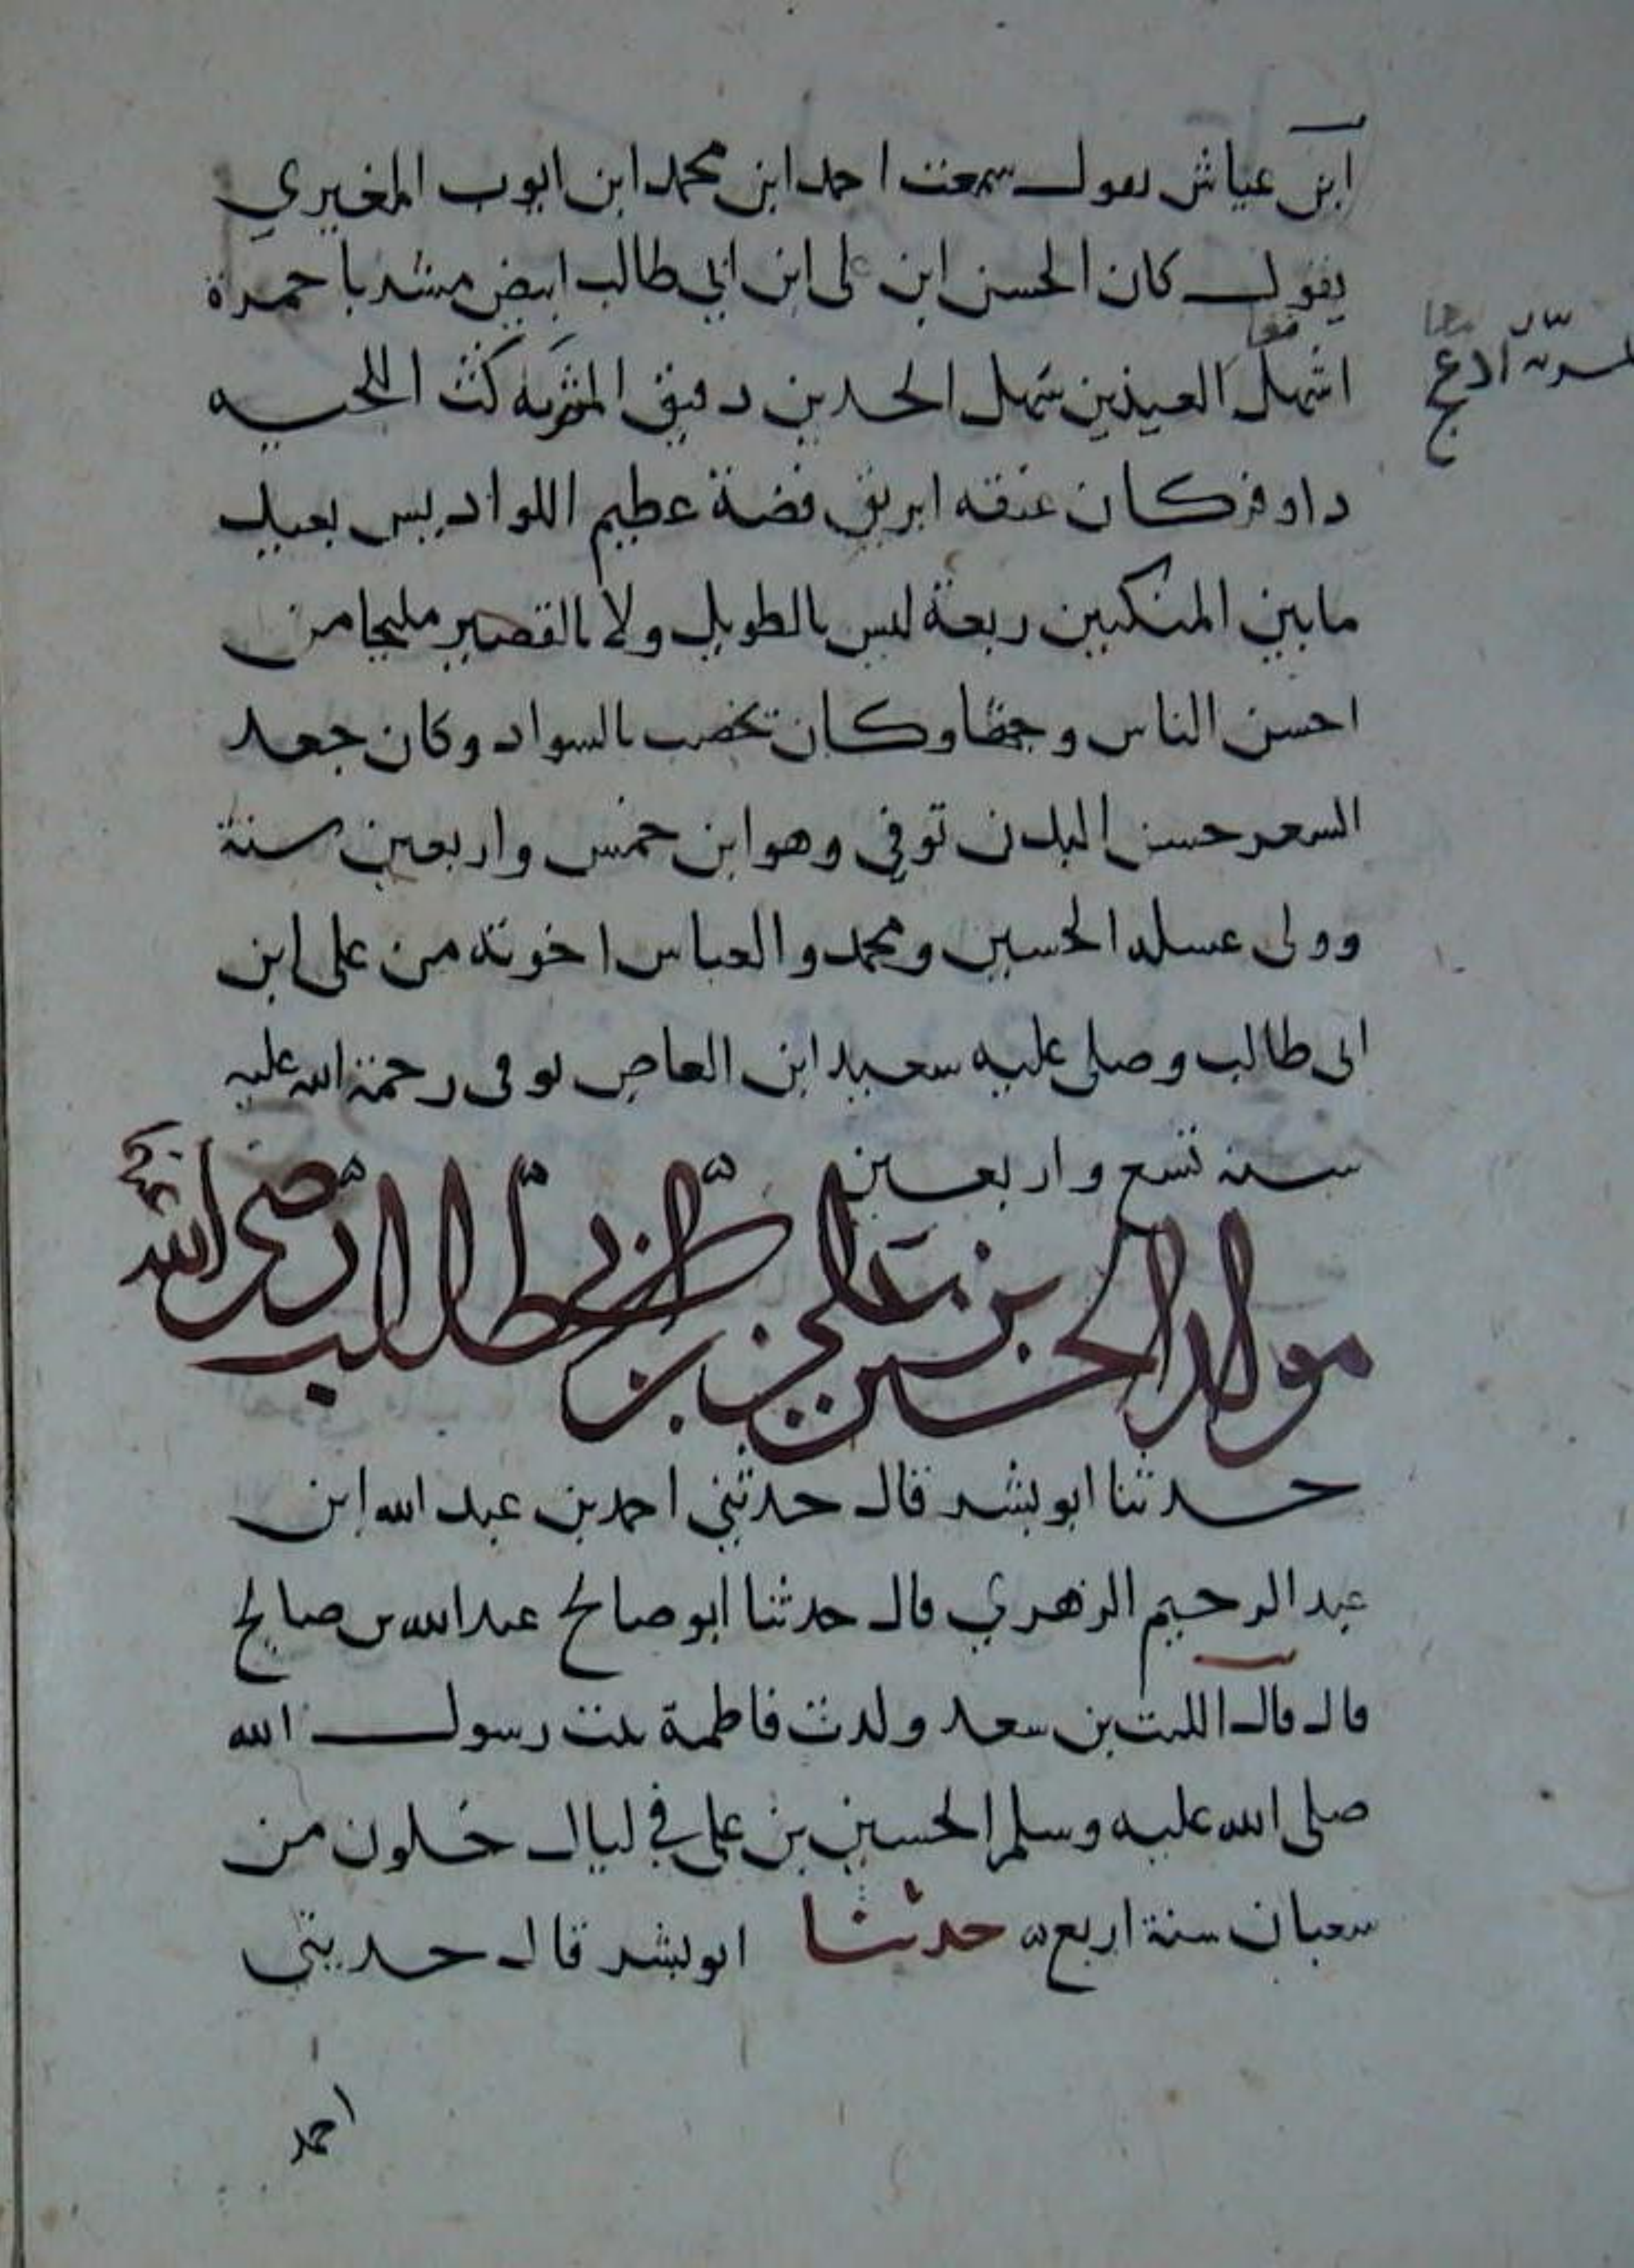 ابن عياش يقول سمعت احمد ابن محمد ابن ايوب المغيري
يقول كان الحسن ابن على ابن ابي طالب ابيض مشربا حمرة
اشهل العينين سهل الخدين دقيق المشربه كث اللحيه
ادعج
داوفر كان عنقه ابريق فضة عظيم اللواديس بعيد
مابين المنكبين ربعة ليس بالطويل ولا بالقصير مليحا من
احسن الناس وجها وكان يخضب بالسواد وكان جعد
السعر حسن البدن توفي وهو ابن خمس واربعين سنة
وولى غسله الحسين ومحمد والعباس اخوته من على ابن
ابى طالب وصلى عليه سعيد ابن العاص توفى رحمة الله عليه
سنه تسع واربعين
مولد الحسين بن علي بن ابي طالب رضي الله
حدثنا ابو بشر قال حدثني احمد بن عبد الله ابن
عبد الرحيم الزهري قال حدثنا ابو صالح عبد الله بن صالح
قال قال الليث بن سعد ولدت فاطمة بنت رسول الله
صلى الله عليه وسلم الحسين بن على في ليال خلون من
سعبان سنة اربع ه حدثنا ابو بشر قال حديثي
احمد